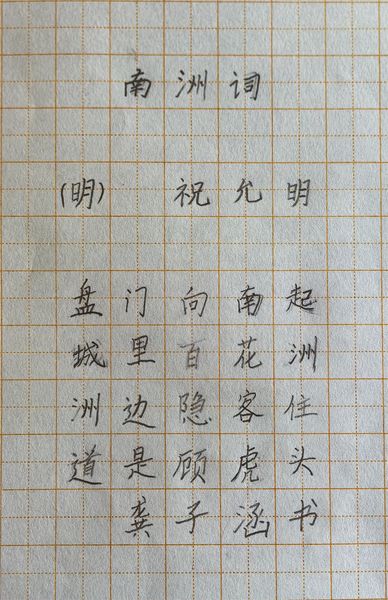 南洲词
(明) 祝允明
盘门向南起
城里百花洲
洲边隐客住
道是顾虎头
龚子涵书